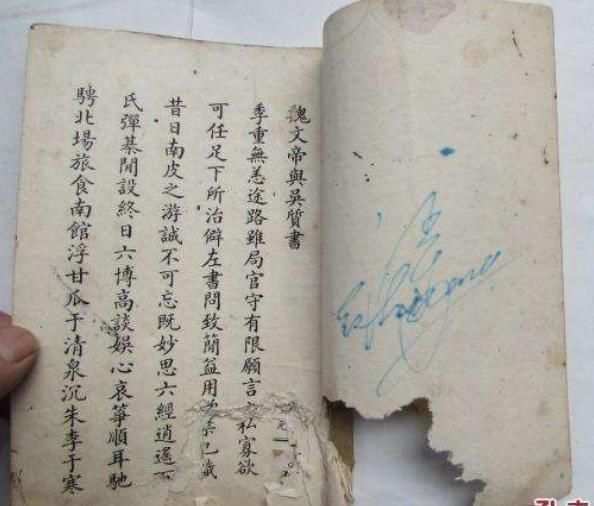 魏文帝與吳質書
季重無恙途路雖局官守有限願言私寡欲
可任足下所治僻左書問致簡益用已歲
昔日南皮之游誠不可忘既妙思六經逍遙
氏彈棊閒設終日六博高談娛心哀箏順耳馳
騁北場旅食南館浮甘瓜于清泉沉朱李于寒